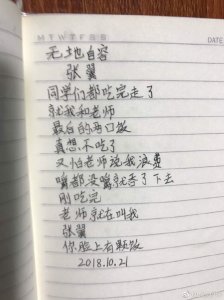 MTWTFSS
DATE
无地自容
张翼
同学们都吃完走了
就我和老师
最后的两口饭
真想不吃了
又怕老师说我浪费
嚼都没嚼就吞了下去
刚吃完
老师就在叫我
张翼
你脸上有颗饭
2018.10.21